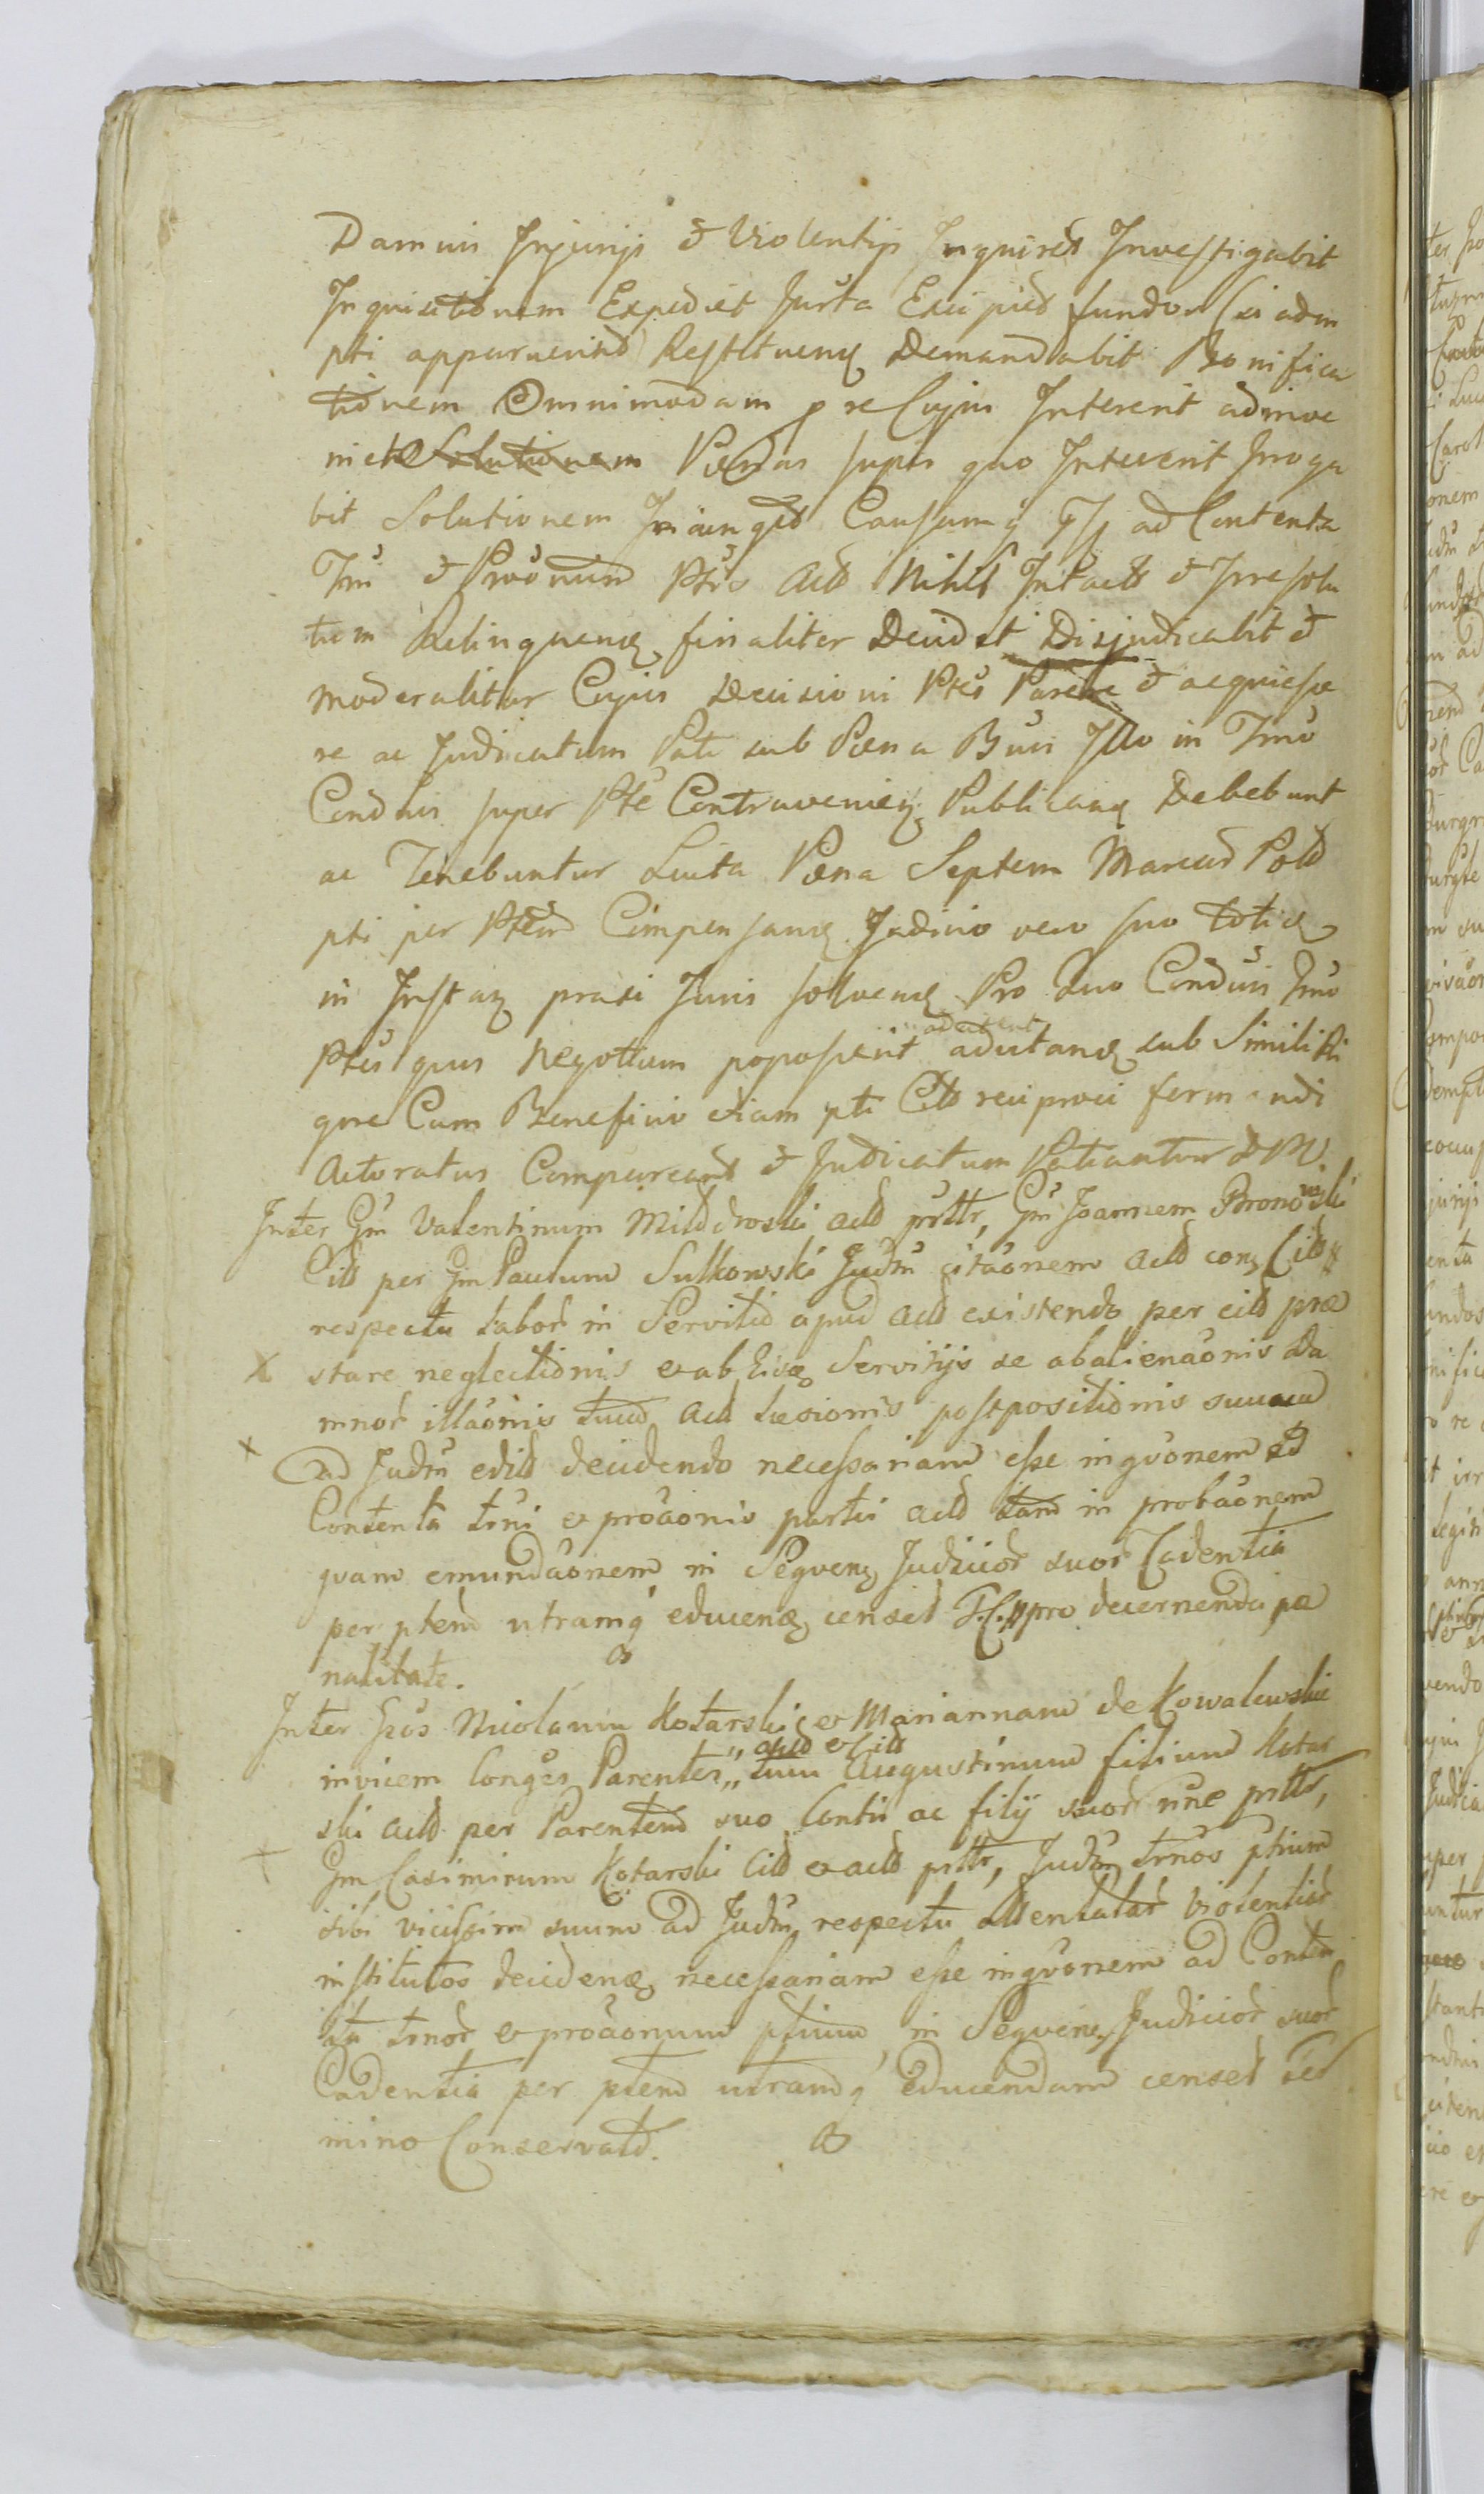 Damnis Injurijs & Violentijs Inquiret Investigabit
Inquisitionem Expediet Juxta Excipiet fundos si adem
pti apparuerint Restituend Demandabit Bonifica
tionem Omnimodam pre Cujus Intererit adinve
niet Solutionem Pænas super quo Intererit Irroga
bit Solutionem Injunget Causamq ad Contenta
Tmi & Proonum Ptis Act Nihil Intact & Irresolu
tum Relinquend finaliter Decidet Disjudicabit &
moderabitur Cujus Decisioni Ptes Parere & acquiesce
re ac Judicatum Pati sub Pæna Bani Illo in Tmo
Condus super Pte Contravenien Publicand Debebunt
ac Tenebuntur Luita Pæna Septem Marcar Pold
pti per Ptem Compensand Judicio vero suo toties
in Instan praxi Juris solvend Pro quo Tmo
Ptes quas Negotium poposcerit adcitent adcitand sub Simili Ri
gore Cum Beneficio etiam pti Citt reciproci ferm ndi
Actoratus Compareant & Judicatum Patiantur D M.
Inter Gm Valentinum act prttr, Gm Joannem Bronowski
Citt per Gm Paulum Sulkowski Judm citaonem act con Citt
respectu labor in Servitio apud act existendo per citt præ
stare neglectionis & ab Servitijs se abalienaonis Da
mnor illaonis tum act læsionis postpositionis suum
ad Judm edit decidendo necessariam esse inqvonem ad
Contenta trni & proaonis partis act tam in probaonem
qvam emundaonem in Seqven Judicior suor Cadentia
per ptem utramq educend censet pro decernenda pæ
nalitate.
Inter Gros Nicolaum Kotarski & Mariannam de Kowalewskie
invicem Conges Parentes, act & citt tum Augustinum filium Kotar
ski act per Parentem suo Contii ac filij suor nne prttr,
Gm Casimirum Kotarski Citt & act prttr, Judm trnos ptium
sibi vicissim suum ad Judm respectu attentatar Violentiar
institutos decidend necessariam esse inqvonem ad Conten
ta trnor & proaonum ptium in Seqven Judicior suor
Cadentia per ptem utramq educendam censet ter
mino Conservato.